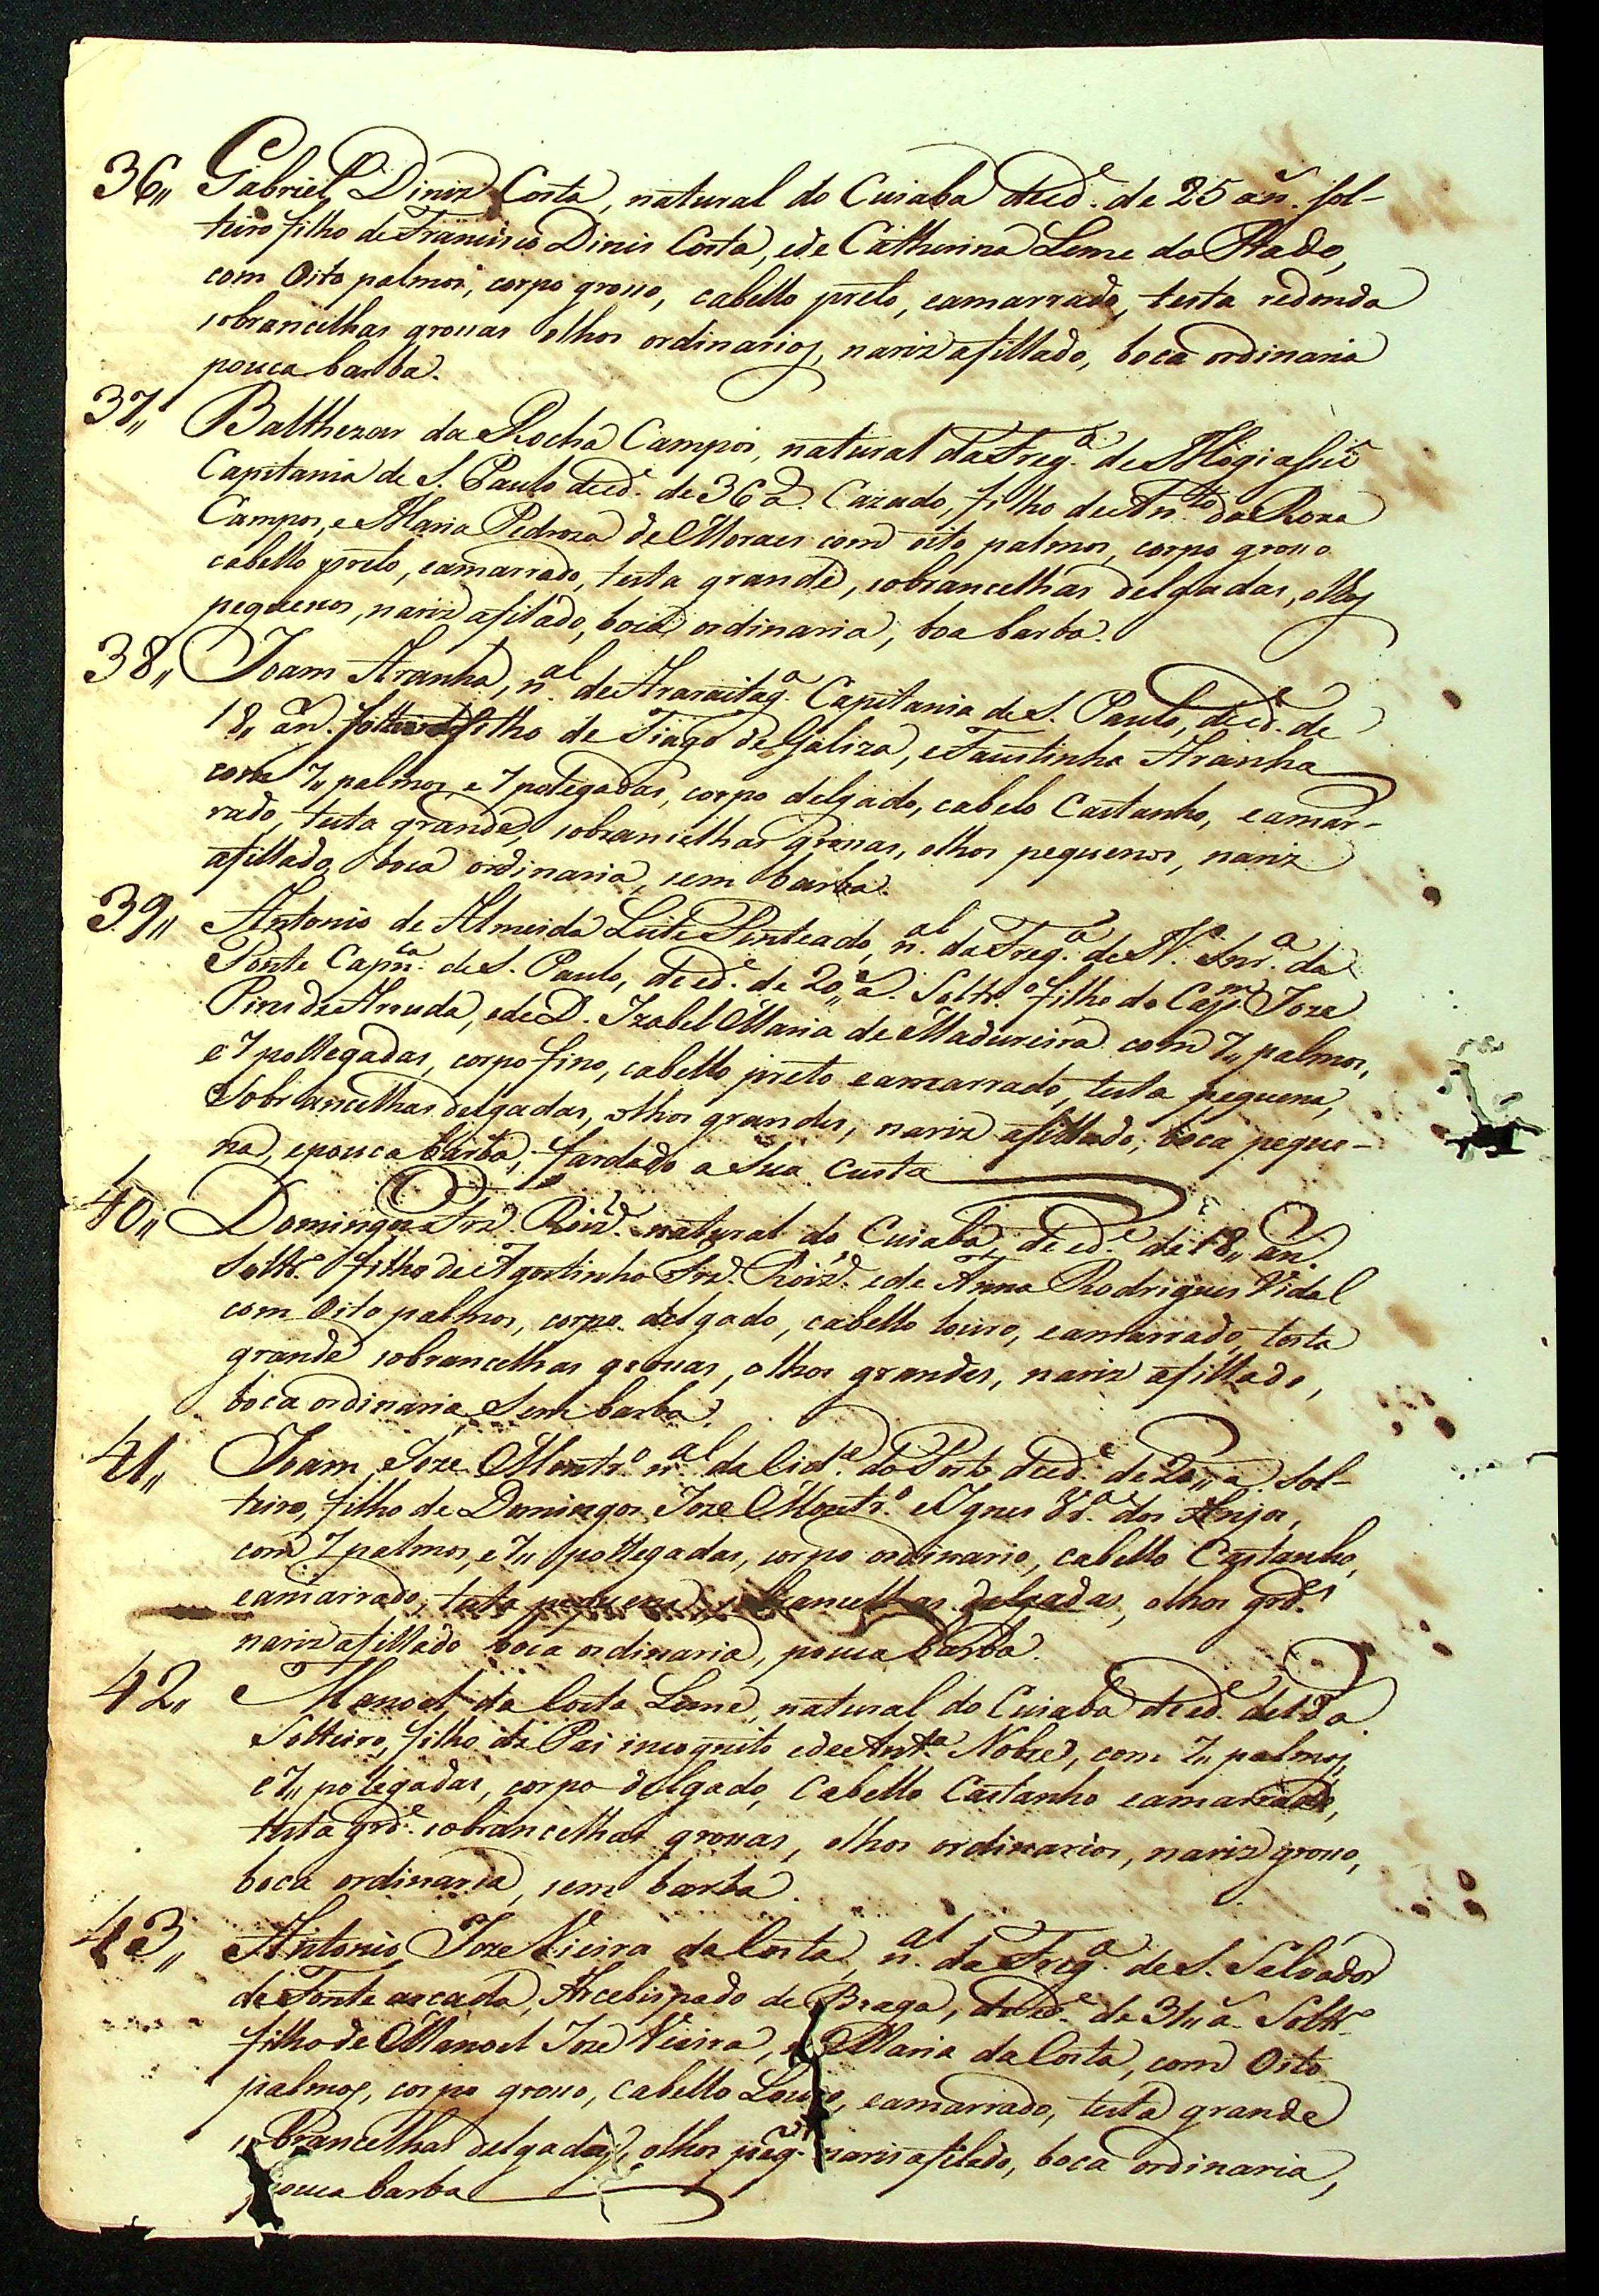 36,, Gabriel Diniz Costa, natural do Cuiaba de id.e de 25 an. sol-
teiro filho de Francisco Dinis Costa, e de Catherina Leme do Prado,
com Oito palmos, corpo grosso, cabello preto, eamarrado, testa redonda
sobrancelhas grossas olhos ordinarios, nariz afillado, boca ordinaria
pouca barba.
37,, Balthezar da Rocha Campos, natural da Freg.a de Mogi
Capitania de S. Paulo de id.e de 36 a. Cazado, filho de An.to da Roxa
Campos, e Maria Pedroza de Moraes com oito palmos, corpo grosso
cabello preto, eamarrado, testa grande, sobrancelhas delgadas, olhos
pequenos, nariz afilado, boca ordinaria, boa barba.
38,, Joam Aranha, n.al de Araraitag.a Capitania de S. Paulo, de id.e de
18,, an. filho de Tiago de Galiza, e Faustinha Aranha
com 7,, palmos, e 7 polegadas, corpo delgado, cabelo Castanho, eamar-
rado, testa grande, sobrancelhas grossas, olhos pequenos, nariz
afillado, boca ordinaria, sem barba.
39,, Antonio de Almeida Leite Penteado, n.al da Freg.a de N. Snr.a da
Ponte Capn.a de S. Paulo, de id.e de 20,, a. Soltr.o filho do Cap.m Joze
Pires de Arruda, e de D. Izabel Maria de Madureira com 7,, palmos,
e 7 pollegadas, corpo fino, cabello preto eamarrado, testa pequena,
Sobrancelhas delgadas, olhos grandes, nariz afillado, boca peque-
na, e pouca barba, fardado a Sua Custa
40,, Domingos Frz. Roiz. natural do Cuiaba, de id.e de 18,, an.
Soltr.o filho de Agostinho Frz. Roiz. e de Anna Rodrigues Vidal
com Oito palmos, corpo delgado, cabello louro, eamarrado, testa
grande sobrancelhas grossas, olhos grandes, nariz afillado,
boca ordinaria, Sem barba.
41,, Joam Joze Montr.o n.al da Cid.e do Porto de id.e de 20,, a. sol-
teiro, filho de Domingos Joze Montr.o e Ignes dos Anjos,
com 7 palmos, e 7,, pollegadas, corpo ordinario, cabello Castanho,
eamarrado, testa pequena sobrancelhas delgadas, olhos grd.es
nariz afillado boca ordinaria, pouca barba.
42,, Manoel da Costa Leme, natural do Cuiaba de id.e de 18 a.
Solteiro, filho de Pai incognito e de Ant.a Nobre, com 7,, palmos,
e 7,, polegadas, corpo delgado, Cabello Castanho eamarrado,
testa grd.e sobrancelhas grossas, olhos ordinarios, nariz grosso,
boca ordinaria, sem barba.
43,, Antonio Joze Vieira da Costa, n.al da Freg.a de S. Salvador
de Fonte arcada, Arcebispado de Braga, de id.e de 31,, a. Soltr.o
filho de Manoel Joze Vieira, e Maria da Costa, com Oito
palmos, corpo grosso, Cabello Louro, eamarrado, testa grande
sobrancelhas delgadas, olhos peq.os nariz afilado, boca ordinaria,
pouca barba